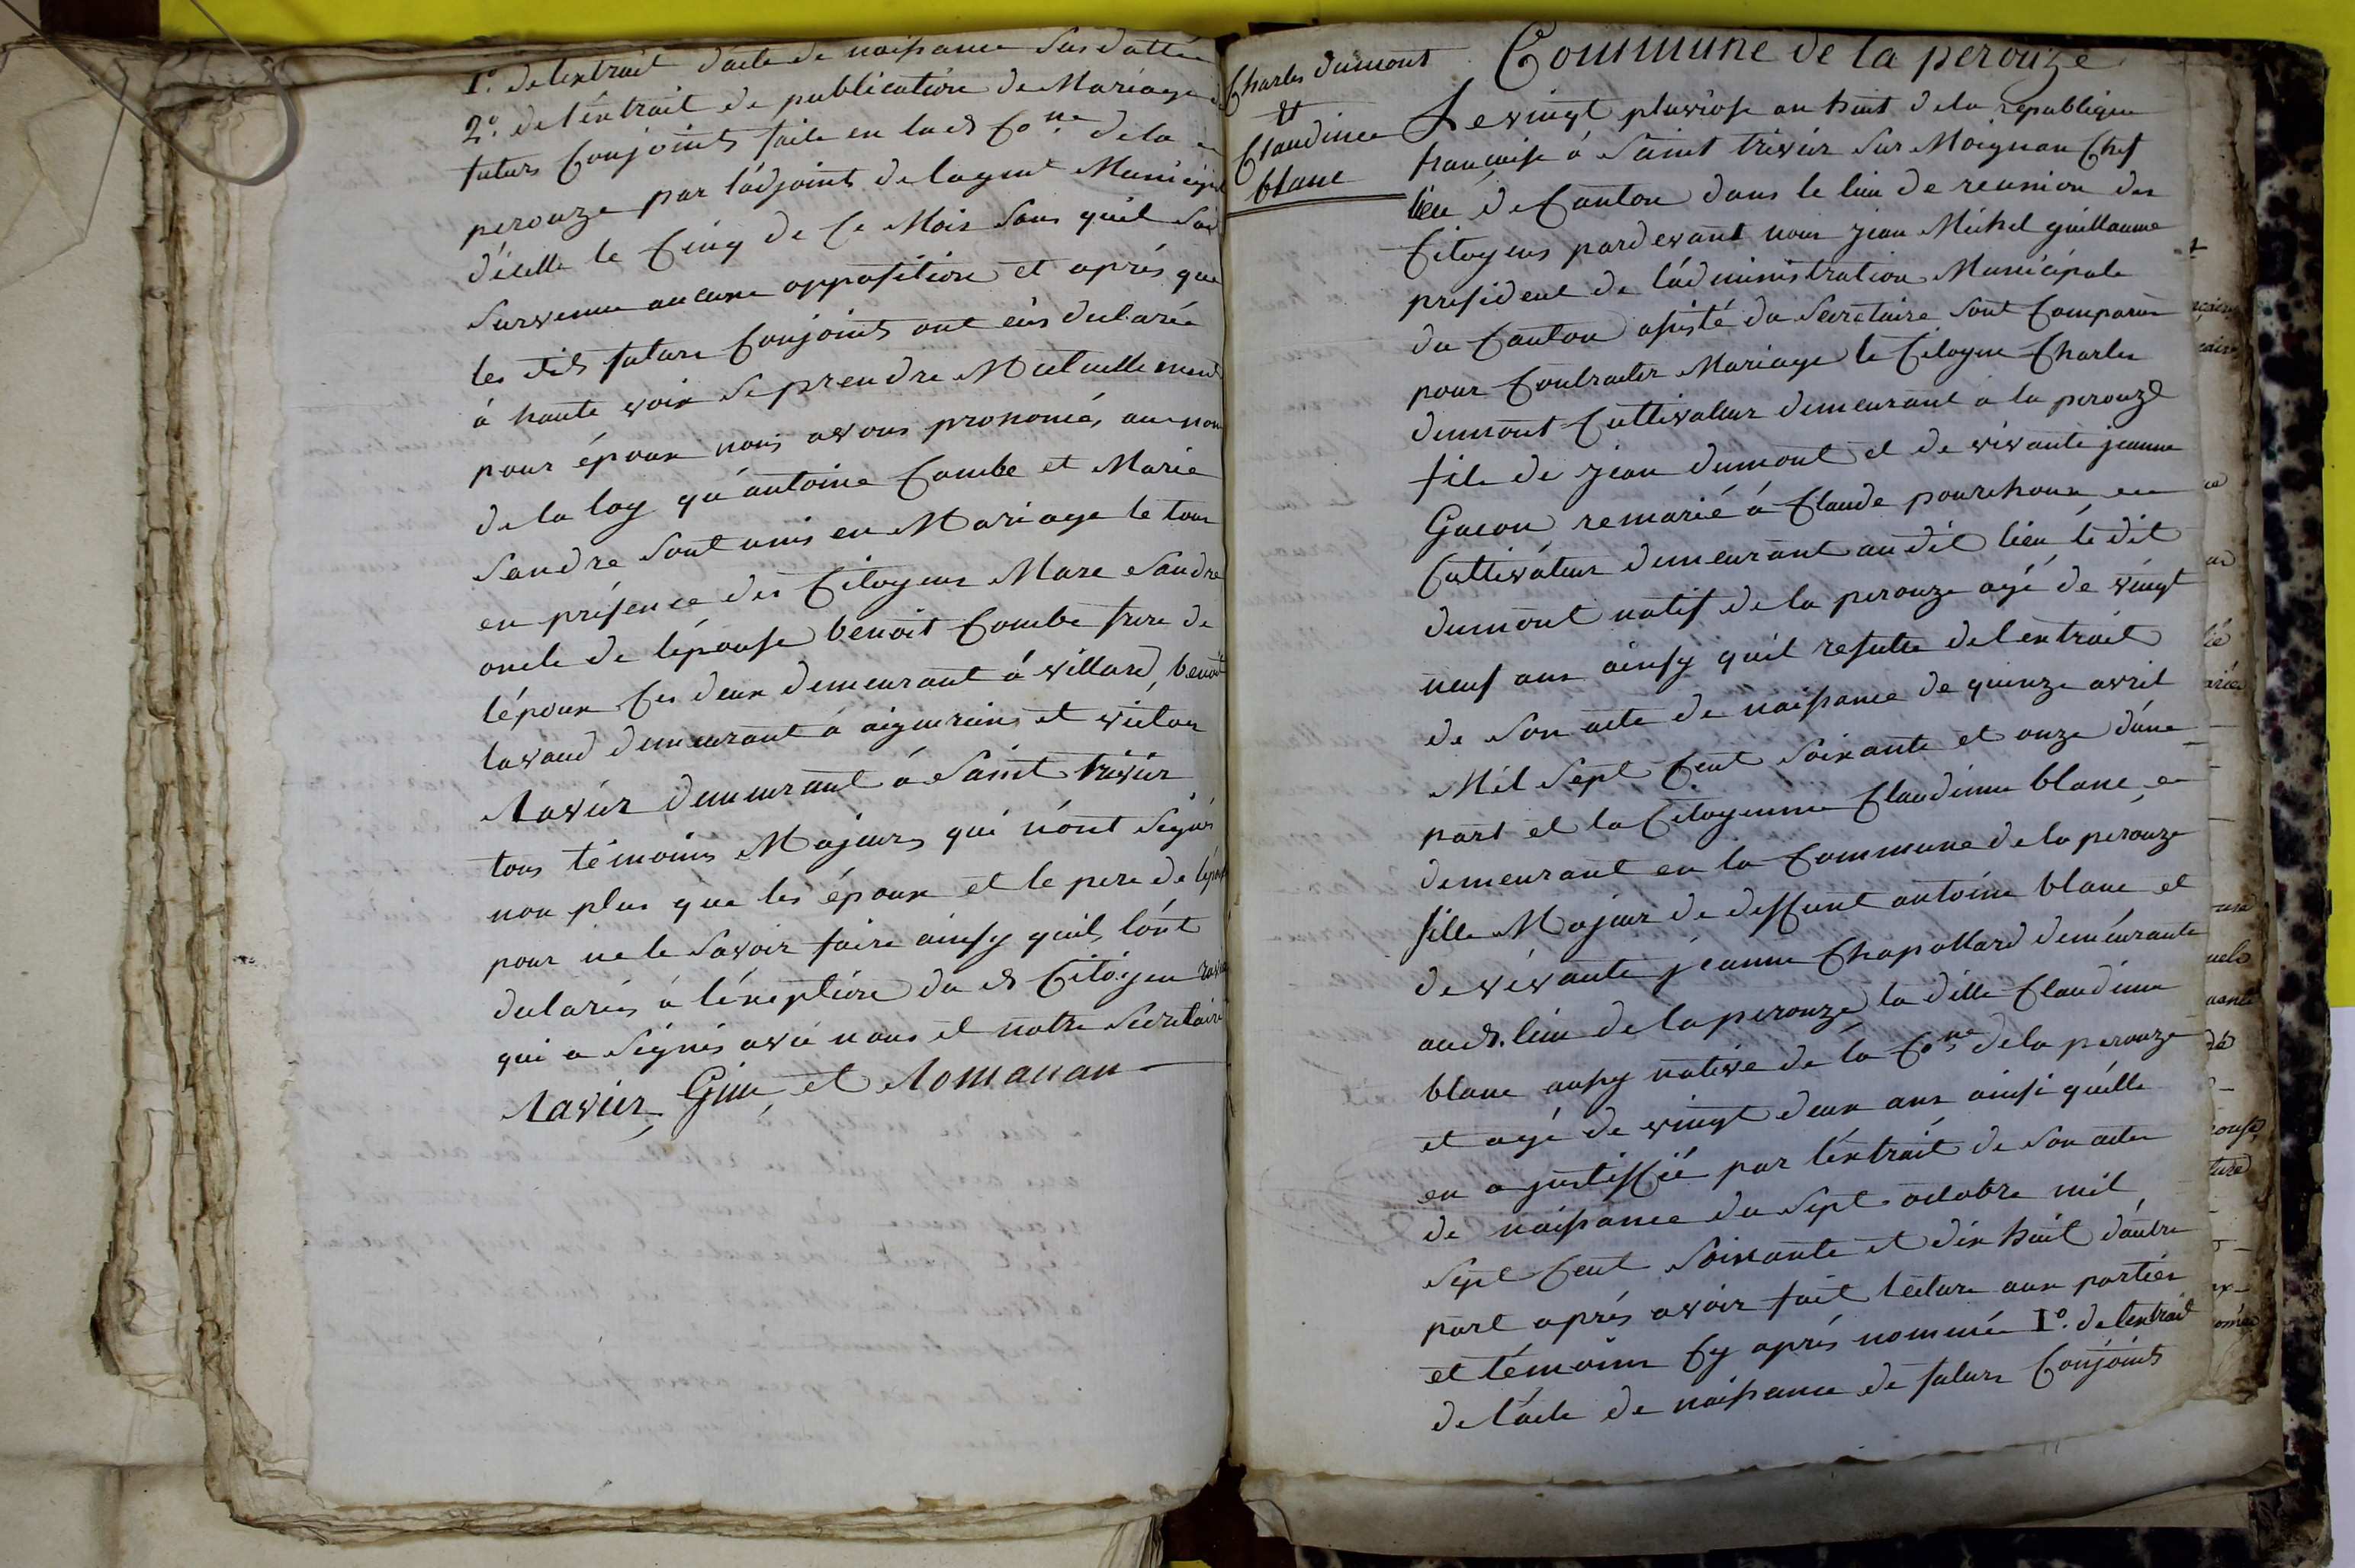 1º. de l'extrait d'acte de naissance susdatté
2º. de l'extrait de publication de Mariage de
futurs Conjoints faite en lad Cone. de la
perouze par l'adjoint de lagent Municipal
d'icelle le Cinq de Ce Mois sans quil soit
survenue aucune opposition et après que
les dits futurs Conjoints ont eûs declarée
à haute voix se prendre Mutuellement
pour époux nous avons prononcés au nom
de la loy qu'antoine Combe et Marie
Sandre sont unis en Mariage le tout
en présence des Citoyens Marc Sandre
oncle de lepouse benoit Combe frere de
lépoux Ces deux demeurant à villard, benoit
lavaud demeurant à aigurains et victor
Ravier demeurant à Saint trivier
tous témoins Majeurs qui n'ont signés
non plus que les époux et le pere de lépouse
pour ne le savoir faire ainsy quils lont
declarés à léxeption du d Citoyen ravier
qui a signés avec nous et notre secretaire
Ravier, Guillaume et Romanan
Commune de la perouze
Charles dumont
&
Claudine
blanc
Le vingt pluviose an huit de la republique
francaise à Saint trivier sur Moignan Chef
lieu de Canton dans le lieu de reunion des
Citoyens pardevant nous jean Michel guillaume
president de l'administration Municipale
du Canton assisté du Secretaire sont Comparus
pour Contracter Mariage le Citoyen Charles
dumont Cultivateur demeurant a la perouze
fils de jean dumont et de vivante jeanne
Gacon remarié à Claude pourchoux
Cultivateur demeurant au dit lieu, le dit
dumont natif de la perouze agé de vingt
neuf ans ainsy qu'il resulte del extrait
de son acte de naissance de quinze avril
Mil Sept Cent soixante et onze d'une
part et la Citoyenne Claudine blanc
demeurant en la Commune de la perouze
fille Majeur de deffunt antoine blanc et
de vivante jeanne Chapollard demeurante
aud. lieu de la perouze, la ditte Claudine
blanc aussy native de la Cone de la perouze
et agé de vingt deux ans ainsi qu'elle
en a justiffié par l'extrait de son acte
de naissance du sept octobre mil
sept Cent soixante et dix huit d'autre
part après avoir fait lecture aux parties
et témoins Cy après nommée 1º. de lextrait
de l'acte de naissance de futurs Conjoints